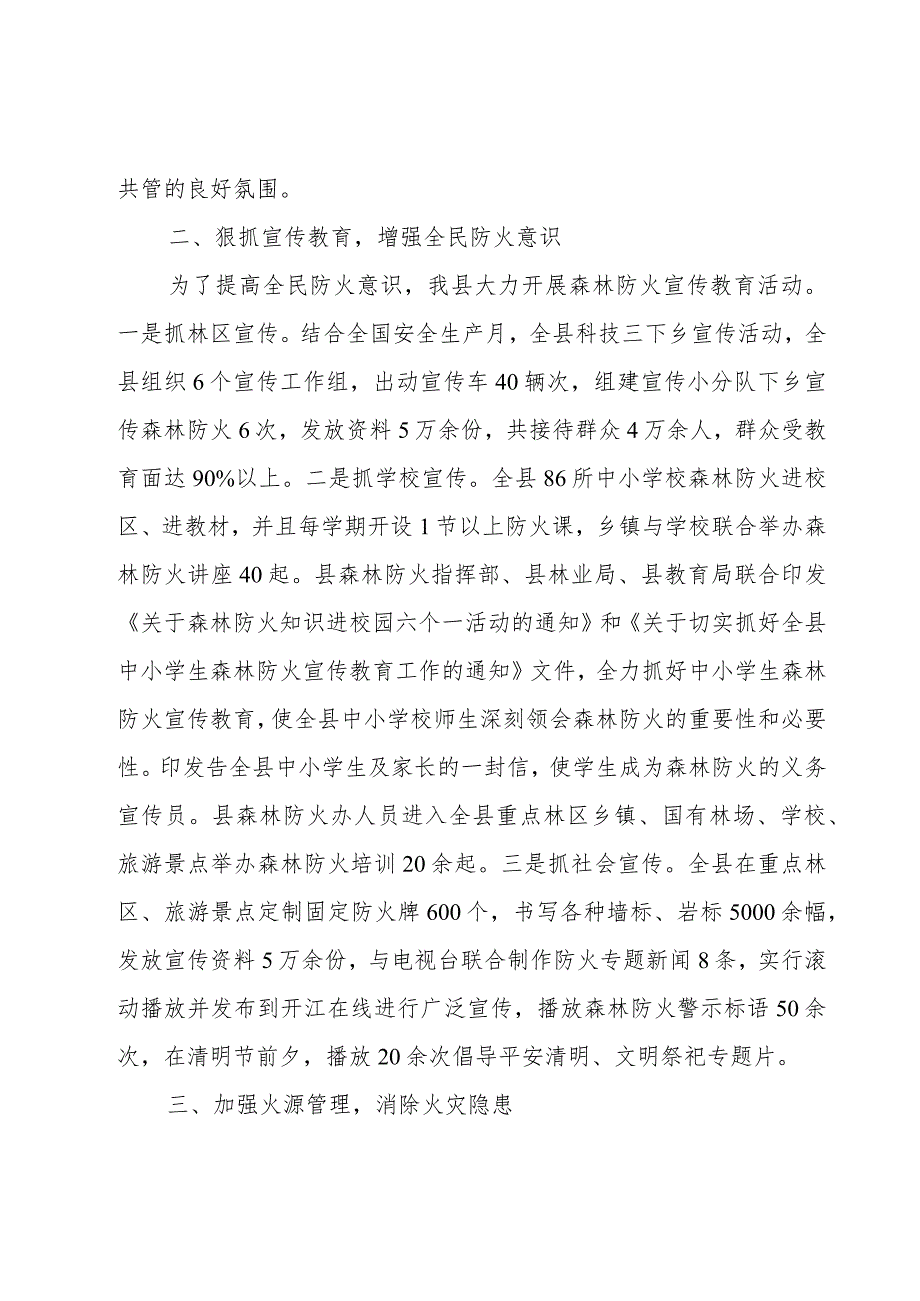 共管的良好氛围。
二、狠抓宣传教育，增强全民防火意识
为了提高全民防火意识，我县大力开展森林防火宣传教育活动。
一是抓林区宣传。结合全国安全生产月，全县科技三下乡宣传活动，全
县组织 6 个宣传工作组，出动宣传车 40 辆次，组建宣传小分队下乡宣
传森林防火 6 次，发放资料 5 万余份，共接待群众 4 万余人，群众受教
育面达 90%以上。二是抓学校宣传。全县 86 所中小学校森林防火进校
区、进教材，并且每学期开设 1 节以上防火课，乡镇与学校联合举办森
林防火讲座 40 起。县森林防火指挥部、县林业局、县教育局联合印发
《关于森林防火知识进校园六个一活动的通知》和《关于切实抓好全县
中小学生森林防火宣传教育工作的通知》文件，全力抓好中小学生森林
防火宣传教育，使全县中小学校师生深刻领会森林防火的重要性和必要
性。印发告全县中小学生及家长的一封信，使学生成为森林防火的义务
宣传员。县森林防火办人员进入全县重点林区乡镇、国有林场、学校、
旅游景点举办森林防火培训 20 余起。三是抓社会宣传。全县在重点林
区、旅游景点定制固定防火牌 600 个，书写各种墙标、岩标 5000 余幅，
发放宣传资料 5 万余份，与电视台联合制作防火专题新闻 8 条，实行滚
动播放并发布到开江在线进行广泛宣传，播放森林防火警示标语 50 余
次，在清明节前夕，播放 20 余次倡导平安清明、文明祭祀专题片。
三、加强火源管理，消除火灾隐患